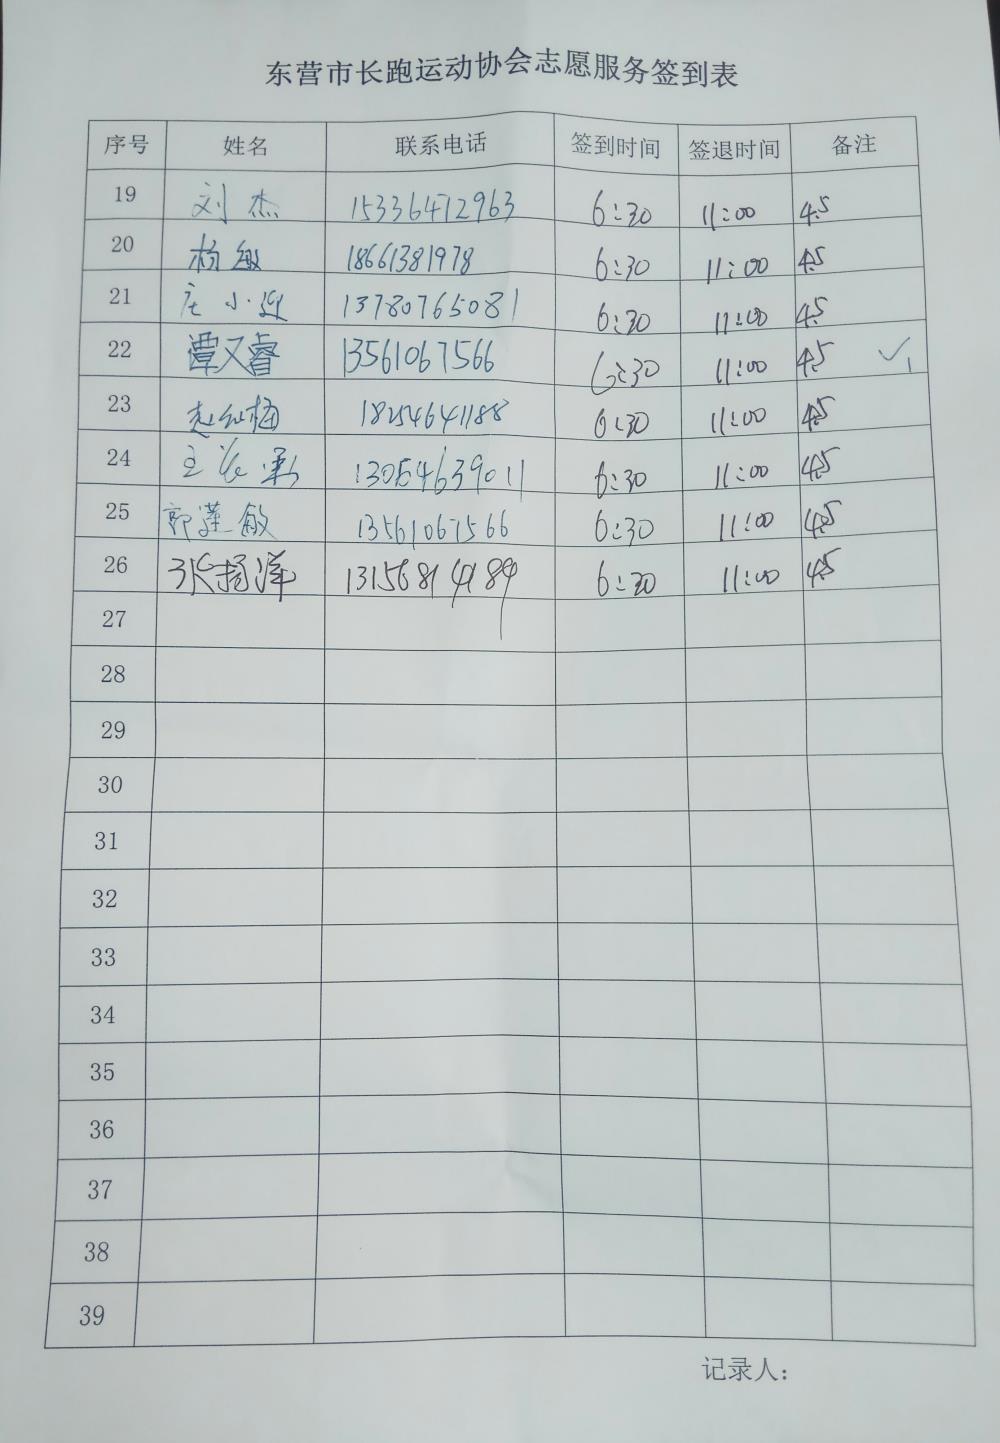 东营市长跑运动协会志愿服务签到表
序号 姓名 联系电话 签到时间 签退时间 备注
19 刘杰 15336472963 6:30 11:00 4.5
20 杨敏 18661381978 6:30 11:00 4.5
21 庄小迎 13780765081 6:30 11:00 4.5
22 谭又睿 13561067566 6:30 11:00 4.5 ✓
23 赵红梅 18254641188 6:30 11:00 4.5
24 13054639011 6:30 11:00 4.5
25 郭莲敏 13561067566 6:30 11:00 4.5
26 张扬洋 6:30 11:00 4.5
27
28
29
30
31
32
33
34
35
36
37
38
39
记录人: